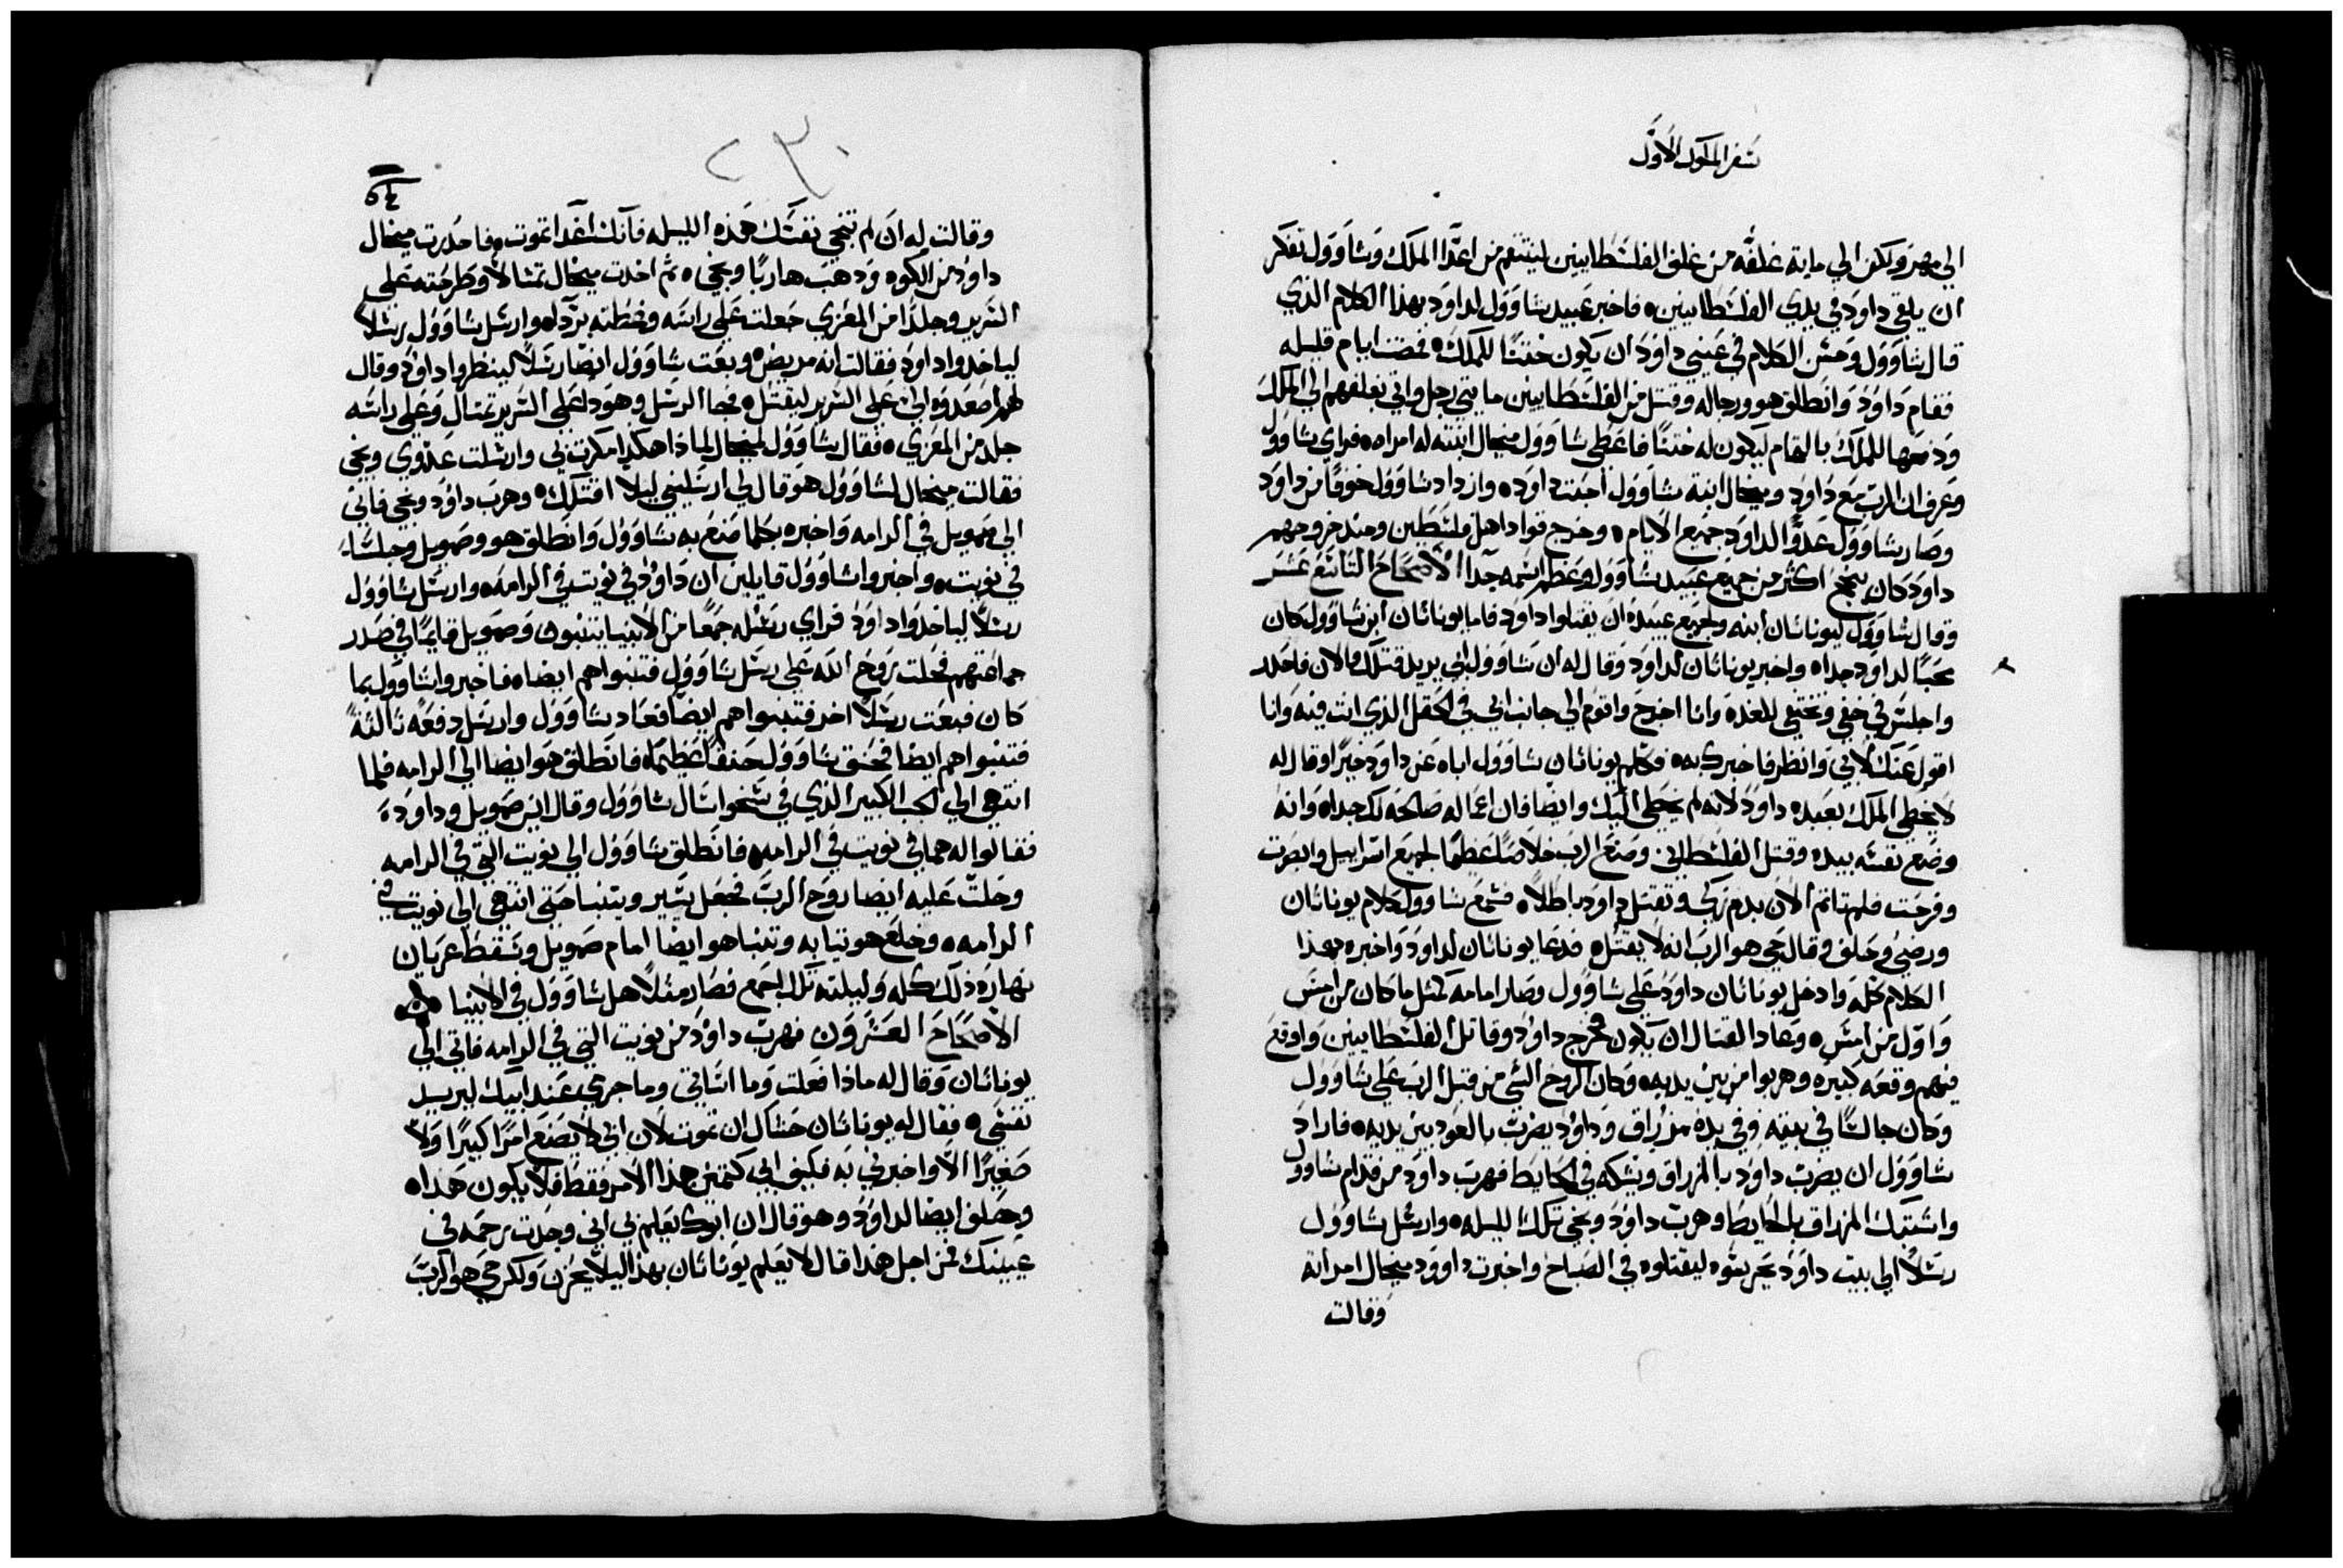 سفر الملوك الاول
الي مهر ولكن الي ماية غلفه من غلف الفلسطانيين لينتقم من اعدا الملك وشاوول تفكر
ان يلقي داود في يدي الفلسطانيين فاخبر عبيد شاوول لداود بهذا الكلام الذي
قال شاوول وحسن الكلام في عيني داود ان يكون ختنا للملك فمضت ايام قليله
فقام داود وانطلق هو ورجاله وقتل من الفلسطانيين مايتي رجل واتي بغلفهم الي الملك
ودفعها للملك بالتمام ليكون له ختنا فاعطي شاوول ميخال ابنته له امراه فراي شاوول
وعرف ان الرب مع داود وميخال ابنة شاوول احبت داود وازداد شاوول خوفا من داود
وصار شاوول عدوا لداود جميع الايام وخرج قواد اهل فلسطين ومند خروجهم
داود كان ينجح اكثر من جميع عبيد شاوول وعظم اسمه جدا الاصحاح التاسع عشر
وقال شاوول ليوناثان ابنه ولجميع عبيده ان يقتلوا داود فاما يوناثان ابن شاوول كان
محبا لداود جدا واخبر يوناثان لداود وقال له ان شاوول ابي يريد قتلك والان فاحدر
واجلس في خفي وتختفي للغده وانا اخرج واقوم الي جانب ابي في الحقل الذي انت فيه وانا
اقول عنك لابي وانظر فاخبرك به فكلم يوناثان شاوول اباه عن داود خيرا وقال له
لا يخطي الملك بعبده داود لانه لم يخطي اليك وايضا فان اعماله صالحه لك جدا وانه
وضع نفسه بيده وقتل الفلسطاني وصنع الرب خلاصا عظيما لجميع اسراييل وابصرت
وفرحت فلم تاثم الان بدم زكي وتقتل داود باطلا فسمع شاوول كلام يوناثان
ورضي وحلف وقال حي هو الرب انه لا يقتل فدعا يوناثان لداود واخبره بهذا
الكلام كله وادخل يوناثان داود علي شاوول وصار امامه كمثل ما كان من امس
واول من امس وعاد القتال ان يكون فخرج داود وقاتل الفلسطانيين واوقع
فيهم وقعه كبيره وهربوا من بين يديه وكان الروح الشي من قبل الرب علي شاوول
وكان جالسا في بيته وفي يده مزراق وداود يضرب بالعود بين يديه فاراد
شاوول ان يضرب داود بالمزراق ويشكه في الحايط فهرب داود من قدام شاوول
واشتبك المزراق بالحايط وهرب داود ونجي تلك الليله وارسل شاوول
رسلا الي بيت داود يحرسوه ليقتلوه في الصباح واخبرت داوود ميخال امراته
وقالت
٢٣٠
٥٤
وقالت له ان لم تنجي نفسك هذه الليله فانك غدا تموت فاحدرت ميخال
داود من الكوه ودهب هاربا ونجي ثم اخدت ميخال تمثالا وطرحته علي
السرير وجلدا من المعزي جعلت علي راسه وغطته بردا وارسل شاوول رسلا
لياخدوا داود فقالت انه مريض وبعت شاوول ايضا رسلا لينظروا داود وقال
لهم اصعدوه الي علي السرير ليقتل فجا الرسل وهودا علي السرير تمثال وعلي راسه
جلد من المعزي فقال شاوول لميخال لماذا هكدا مكرت بي وارسلت عدوي ونجي
فقالت ميخال لشاوول هو قال لي ارسليني ليلا اقتلك وهرب داود ونجي فاتي
الي صمويل في الرامه واخبره بكلما صنع به شاوول وانطلق هو وصمويل وجلسا
في نويت واخبروا شاوول قايلين ان داود في نويت في الرامه وارسل شاوول
رسلا لياخدوا داود فراي رسله جمعا من الانبيا يتنبون وصمويل قايما في صدر
جماعتهم فحلت روح الله علي رسل شاوول فتنبوا هم ايضا فاخبروا شاوول بما
كان فبعت رسلا اخر فتنبوا هم ايضا فعاد شاوول وارسل دفعه ثالثه
فتنبوا هم ايضا فحنق شاوول حنقا عظيما فانطلق هو ايضا الي الرامه فلما
انتهي الي الجب الكبير الذي في سخوا سال شاوول وقال اين صمويل وداود
فقالوا له هما في نويت في الرامه فانطلق شاوول الي نويت التي في الرامه
وحلت عليه ايضا روح الرب فجعل يسير ويتنبا حتي انتهي الي نويت في
الرامه وخلع هو تيابه وتنبا هو ايضا امام صمويل وسقط عريان
نهاره ذلك كله وليلته تلك اجمع فصار مثلا هل شاوول في الانبيا
الاصحاح العشرون فهرب داود من نويت التي في الرامه فاتي الي
يوناثان وقال له ماذا فعلت وما اساتي وما جري عند ابيك ليريد
نفسي فقال له يوناثان حشاك ان تموت لان ابي لا يصنع امرا كبيرا ولا
صغيرا الا واخبرني به فكيف ابي كتمني هذا الامر فقط فلا يكون هدا
وحلف ايضا لداود وهو قال ان ابوك يعلم بي اني وجدت رحمه في
عينيك فمن اجل هذا قال لا يعلم يوناثان بهذا ليلا يحزن ولكن حي هو الرب